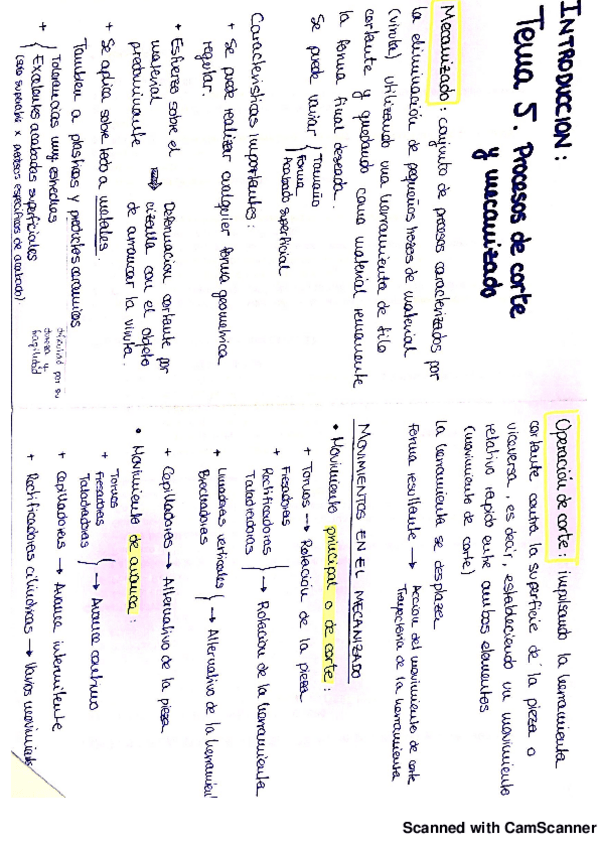 INTRODUCCION:
Tema 5. Procesos de corte
y mecanizado
Mecanizado: conjunto de procesos caracterizados por
la eliminación de pequeños trozos de material
(viruta) utilizando una herramienta de filo
cortante y quedando como material remanente
la forma final deseada.
Se puede variar { Tamaño
Forma
Acabado superficial
Caracteristicas importantes:
+ Se puede realizar cualquier forma geometrica
regular.
+ Esfuerzo sobre el
material
predominante
Deformacion cortante por
cizalla con el objeto
de arrancar la viruta.
+ Se aplica sobre todo a metales.
Tambien a plasticos y productos ceramicos
dificultad por su
dureza y
fragilidad
+ { Tolerancias muy estrechas
Excelentes acabados superficiales
(solo superados x procesos especificos de acabado).
Operación de corte: impulsando la herramienta
cortante contra la superficie de la pieza o
viceversa, es decir, estableciendo un movimiento
relativo rapido entre ambos elementos
(movimiento de corte)
La herramienta se desplaza
Forma resultante → Accion del movimiento de corte
Trayectoria de la herramienta
MOVIMIENTOS EN EL MECANIZADO
• Movimiento principal o de corte:
+ Tornos → Rotación de la pieza
+ Fresadoras
Rectificadoras
Taladradoras } → Rotacion de la herramienta
+ Limadoras verticales
Brochadoras } → Alternativo de la herramien
+ Cepilladoras → Alternativo de la pieza
• Movimiento de avance:
+ Tornos
Fresadoras
Taladradoras } → Avance continuo
+ Cepilladoras → Avance intermitente
+ Rectificadoras cilindricas → Varios movimient
Scanned with CamScanner